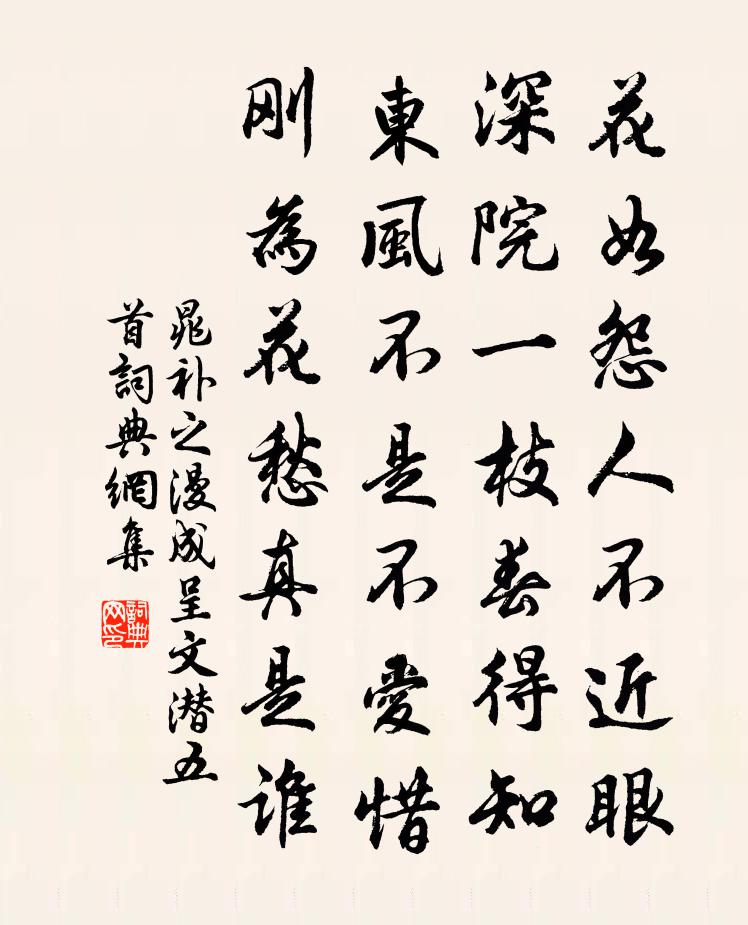 花如怨人不近眼
深院一枝春得知
東風不是不愛惜
剛為花愁真是誰
晁补之漫成呈文潜五
首詞典網集
詞典网印